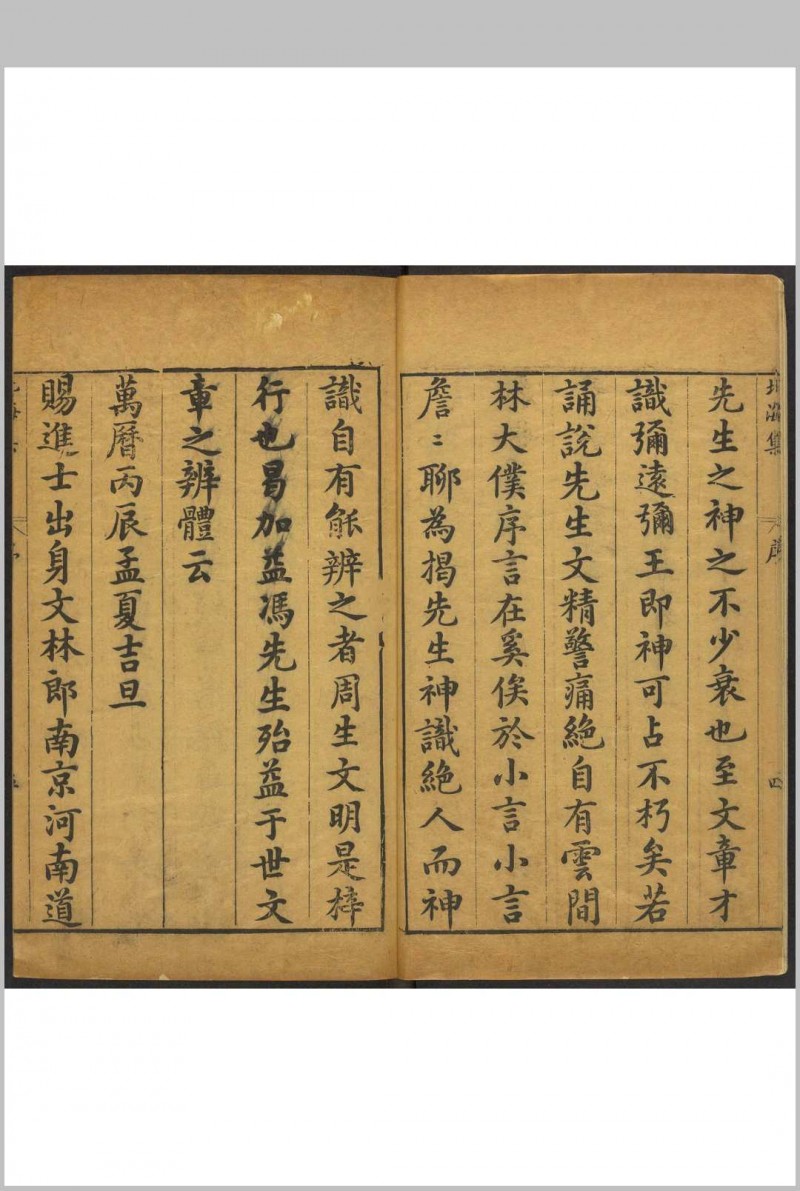 北海集
序
四
先生之神之不少衰也至文章才
識彌遠彌王即神可占不朽矣若
誦說先生文精警痛絶自有雲間
林大僕序言在奚俟於小言小言
詹〻聊為揭先生神識絶人而神
識自有能辨之者周生文明是梓
行也曷加益馮先生殆益于世文
章之辨體云
萬曆丙辰孟夏吉旦
賜進士出身文林郎南京河南道